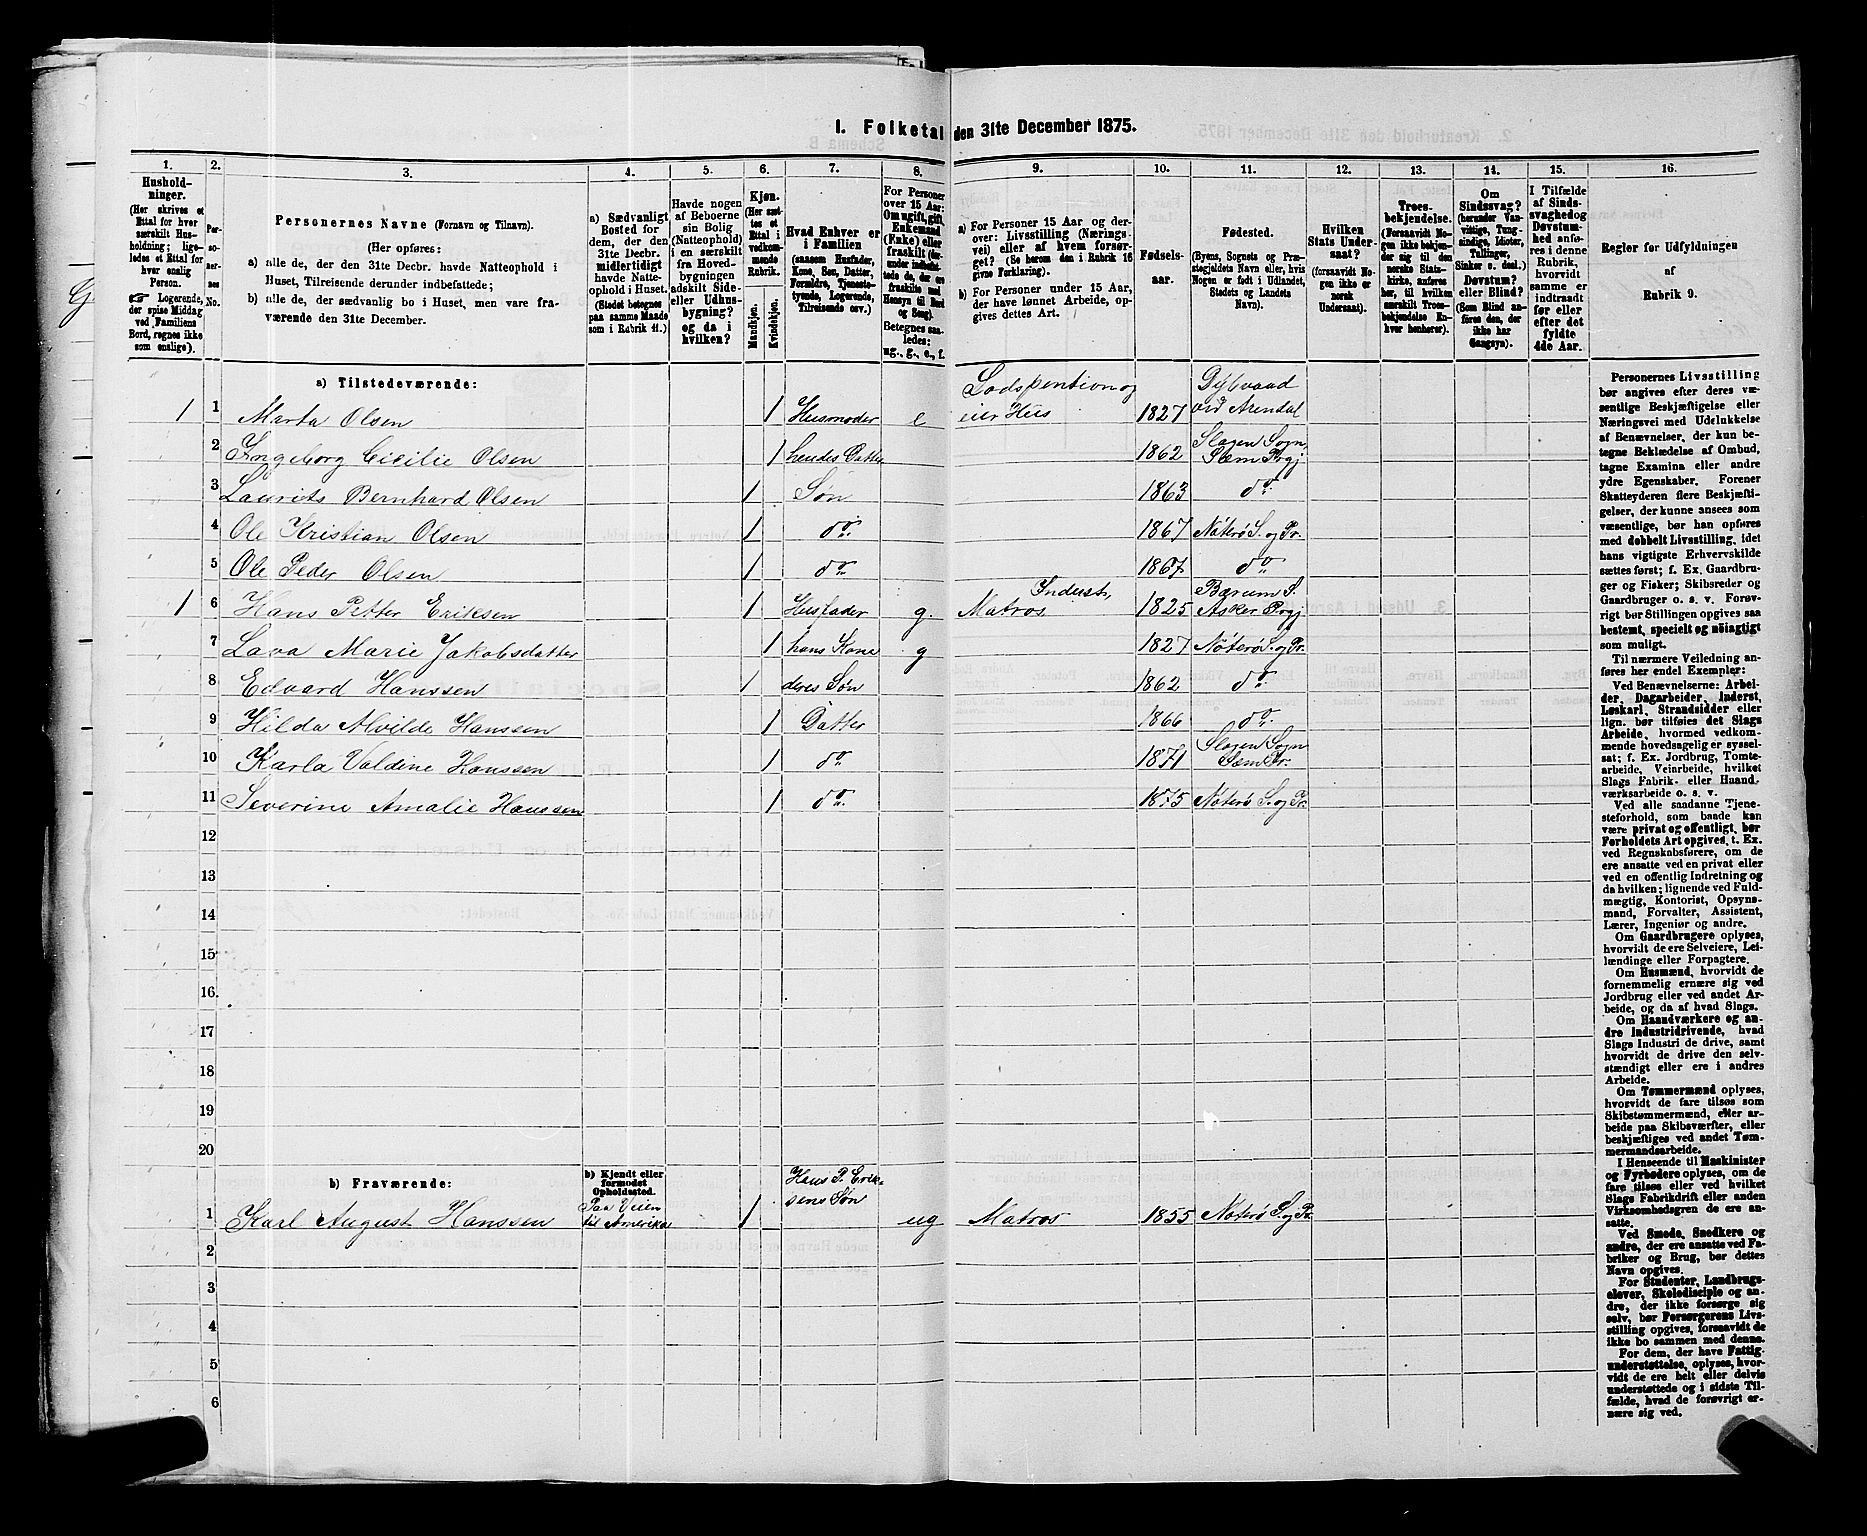 I. Folketal den 31te December 1875.
1. 2. 3. 4. 5. 6. 7. 8. 9. 10. 11. 12. 13. 14. 15. 16.
Hushold-
ninger.
(Her skrives et
Ettal for hver
særskilt Hus-
holdning; lige-
ledes et Ettal for
hver enslig
Person.
☞ Logerende,
der spise Middag
ved Familiens
Bord, regnes ikke
som enslige).
Per-
so-
ner-
nes
No.
Personernes Navne (Fornavn og Tilnavn).
(Her opføres:
a) alle de, der den 31te Decbr. havde Natteophold i
Huset, Tilreisende derunder indbefattede;
b) alle de, der sædvanlig bo i Huset, men vare fra-
værende den 31te December.
a) Sædvanligt
Bosted for
dem, der den
31te Decbr.
midlertidigt
havde Natte-
ophold i Huset.
(Stedet betegnes
paa samme Maade
som i Rubrik 11.)
Havde nogen
af Beboerne
sin Bolig
(Natteophold)
i en særskilt
fra Hoved-
bygningen
adskilt Side-
eller Udhus-
bygning?
og da i
hvilken?
Kjøn.
(Her sæt-
tes et
Ettal i
vedkom-
mende
Rubrik.
Mandkjøn.
Kvindekjøn.
Hvad Enhver er
i Familien
(saasom Husfader,
Kone, Søn, Datter,
Forældre, Tjeneste-
tyende, Logerende,
Tilreisende osv.)
For Personer
over 15 Aar:
Om ugift, gift,
Enkemand
(Enke) eller
fraskilt (her-
under indbefat-
tede de, der ere
fraskilte med
Hensyn til Bord
og Seng).
Betegnes saa-
ledes:
ug., g., e., f.
a) For Personer 15 Aar og der-
over: Livsstilling (Nærings-
vei) eller af hvem forsør-
get? (Se herom den i Rubrik 16
givne Forklaring).
b) For Personer under 15 Aar,
der have lønnet Arbeide, op-
gives dettes Art.
Fødsels-
aar.
Fødested.
(Byens, Sognets og Præ-
stegjeldets Navn eller, hvis
Nogen er født i Udlandet,
Stedets og Landets
Navn).
Hvilken
Stats Under-
saat?
(forsaavidt No-
gen ikke er
norsk
Undersaat).
Troes-
bekjendelse.
(Forsaavidt No-
gen ikke bekjen-
der sig til den
norske Stats-
kirke, anføres
her, til hvilken
særskilt Troes-
bekjendelse En-
hver henhører).
Om
Sindssvag?
(herunder Van-
vittige, Tung-
sindige, Idioter,
Tullinger,
Sinker o. desl.)
Døvstum?
eller Blind?
(Som Blind an-
føres den, der
ikke har
Gangsyn).
I Tilfælde
af Sinds-
svaghed og
Døvstum-
hed anfø-
res i denne
Rubrik,
hvorvidt
samme er
indtraadt
før eller
efter det
fyldte
4de Aar.
Regler for Udfyldningen
af
Rubrik 9.
a) Tilstedeværende:
1 1 Marta Olsen 1 Husmoder e Lodspention og eier Hus 1827 Dybvaad ved Arendal
2 Ingeborg Cicilie Olsen 1 hendes Datter 1862 Slagen Sogn Sem Prgj
3 Laurits Bernhard Olsen 1 Søn 1863 do.
4 Ole Kristian Olsen 1 do. 1867 Nøterø S. og Pr.
5 Ole Peder Olsen 1 do 1867 do
1 6 Hans Petter Eriksen 1 Husfader g. Inderst, Matros 1825 Bærum S. Asker Prgj
7 Lava Marie Jakobsdatter 1 hans Kone g 1827 Nøterø S. og Pr.
8 Edvard Hanssen 1 deres Søn 1862 do.
9 Hilda Alvilde Hanssen 1 Datter 1866 do.
10 Karla Valdine Hanssen 1 do. 1871 Slagen Sogn Sem Pr.
11 Severine Amalie Hanssen 1 do. 1875 Nøterø S. og Pr.
12
13
14
15
16.
17
18
19
20
b) Fraværende:
b) Kjendt eller
formodet
Opholdssted.
1 Karl August Hanssen Paa Veien til Amerika 1 Hans P. Erik-sens Søn ug Matros 1855 Nøterø S. og Pr.
2
3
4
5
6
Personernes Livsstilling
bør angives efter deres væ-
sentlige Beskjæftigelse eller
Næringsvei med Udelukkelse
af Benævnelser, der kun be-
tegne Beklædelse af Ombud,
tagne Examina eller andre
ydre Egenskaber. Forener
Skatteyderen flere Beskjæfti-
gelser, der kunne ansees som
væsentlige, bør han opføres
med dobbelt Livsstilling, idet
hans vigtigste Erhvervskilde
sættes først; f. Ex. Gaardbru-
ger og Fisker; Skibsreder og
Gaardbruger o. s. v. Forøv-
rigt bør Stillingen opgives saa
bestemt, specielt og nöiagtigt
som muligt.
Til nærmere Veiledning an-
føres her endel Exempler:
Ved Benævnelserne: Arbei-
der, Dagarbeider, Inderst,
Løskarl, Strandsidder eller
lign. bør tilføies det Slags
Arbeide, hvormed vedkom-
mende hovedsagelig er syssel-
sat; f. Ex. Jordbrug, Tomte-
arbeide, Veiarbeide, hvilket
Slags Fabrik- eller Haand-
værksarbeide o. s. v.
Ved alle saadanne Tjene-
steforhold, som baade kan
være privat og offentligt, bør
Forholdets Art opgives, t. Ex.
ved Regnskabsførere, om de
ere ansatte ved en privat eller
ved en offentlig Indretning og
da hvilken; lignende ved Fuld-
mægtig, Kontorist, Opsyns-
mand, Forvalter, Assistent,
Lærer, Ingeniør og andre.
Om Gaardbrugere oplyses,
hvorvidt de ere Selveiere, Lei-
lændinge eller Forpagtere.
Om Husmænd, hvorvidt de
fornemmelig ernære sig ved
Jordbrug eller ved andet Ar-
beide, og da af hvad Slags.
Om Haandværkere og an-
dre Industridrivende, hvad
Slags Industri de drive, samt
hvorvidt de drive den selv-
stændigt eller ere i andres
Arbeide.
Om Tømmermænd oplyses,
hvorvidt de fare tilsøs som
Skibstømmermænd, eller ar-
beide paa Skibsværfter, eller
beskjæftiges ved andet Tøm-
mermandsarbeide.
I Henseende til Maskinister
og Fyrbødere oplyses, om de
fare tilsøs eller ved hvilket
Slags Fabrikdrift eller anden
Virksomhedsgren de ere an-
satte.
Ved Smede, Snedkere og
andre, der ere ansatte ved Fa-
briker og Brug, bør dettes
Navn opgives.
For Studenter, Landbrugs-
elever, Skoledisciple og an-
dre, der ikke forsørge sig
selv, bør Forsørgerens Livs-
stilling opgives, forsaavidt de
ikke bo sammen med denne.
For dem, der have Fattig-
understøttelse, oplyses, hvor-
vidt de ere helt eller delvis
understøttede og i sidste Til-
fælde, hvad de forøvrigt er-
nære sig ved.